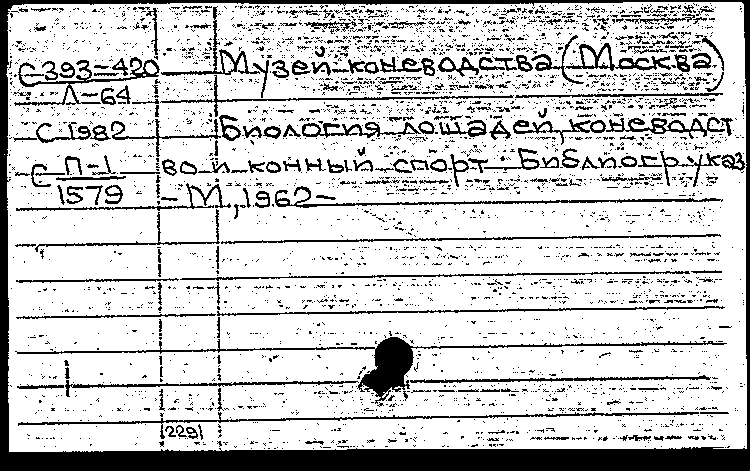 С 393-420 Музей коневодства (Москва)
Л-64
С 1982 Биология лошадей, коневодст
С П-1 во и конный спорт : Библиогр. указ
1579 - М., 1962-
229